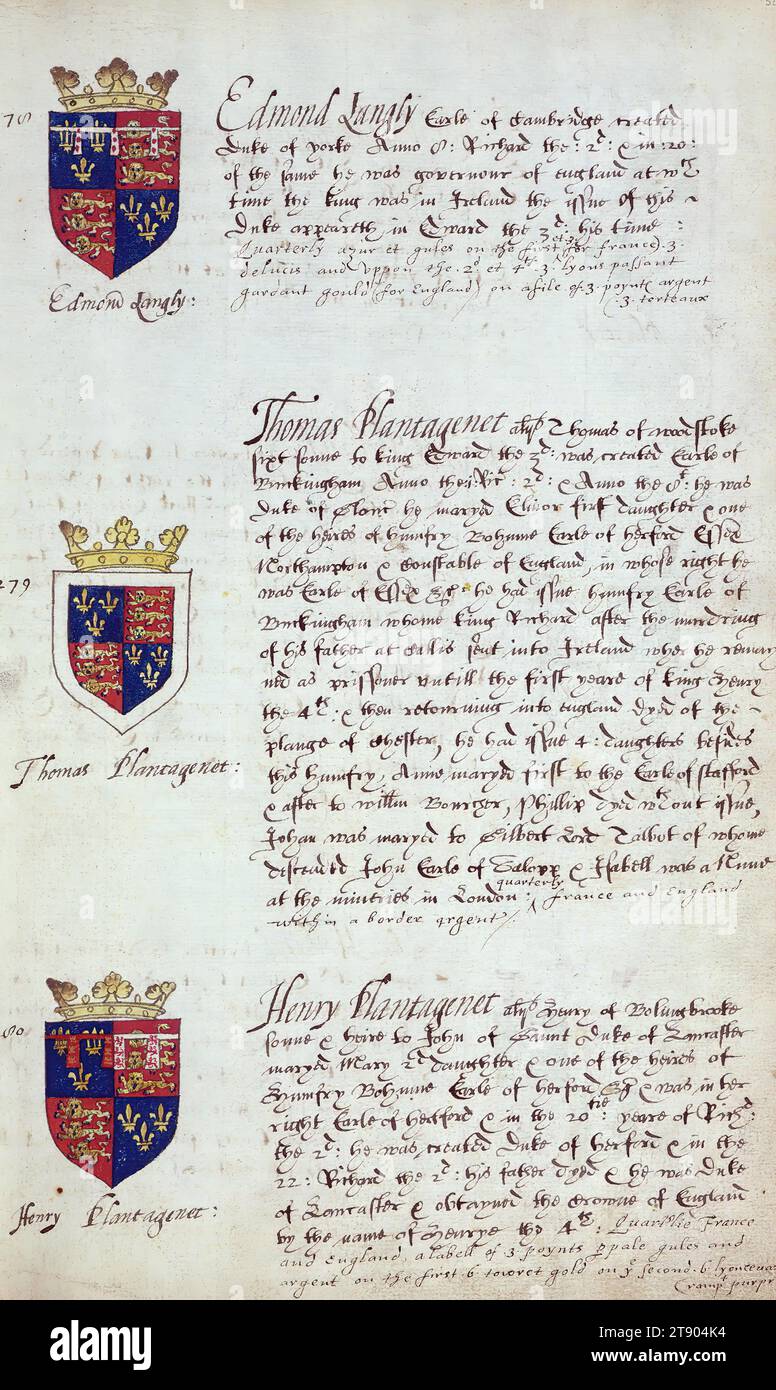 78
Edmond Langly Earle of Cambridge created
Duke of Yorke Anno 8: Richard the: 2d: & in: 20:
of the same he was governour of England at wch
time the king was in Ireland the issue of this
Duke appeareth in Edward the 3d: his time:
Quarterly azur et gules on the first et 3. (for france) .3.
delucis and uppon the .2d et 4th .3. lyons passant
gardant gould (for England) on a file of .3. poynts argent
.3. torteaux
Edmond Langly:
Thomas Plantagenet alijs Thomas of woodstoke
sixt sonne to king Edward the 3d: was created Earle of
Buckingham Anno the i Ric: 2d: & Anno the 8: he was
Duke of Glouc he maryed Elinor first daughter & one
of the heires of Humfry Bohunne Earle of herford Essex
Northampton & Constable of England, in whose right he
was Earle of Essex &c: he had issue humfry Earle of
Buckingham whome king Richard after the murdring
of his father at Callis sent into Ireland wher he remay
ned as prissoner untill the first yeare of king Henry
the 4th: & then retourning into england dyed of the
plauge of Chester, he had issue 4: daughters besides
this humfry, Anne maryed first to the Earle of Stafford
& after to willm Bourcher, Phillip dyed wthout issue,
Johan was maryed to Gilbert Lord Talbot of whome
descended John Earle of Salopp & Isabell was a Nunne
at the minories in London: quarterly france and England
within a border argent
279
Thomas Plantagenet:
Henry Plantagenet alijs Henry of Bolingbrooke
sonne & heire to John of Gaunt Duke of Lancaster
maryed Mary 2d daughter & one of the heires of
Humfry Bohunne Earle of herford &c & was in her
right Earle of hertford & in the 20tie: yeare of Rich:
the 2d: he was created Duke of herford & in the
22: Richard the 2d: his father dyed & he was Duke
of Lancaster & obtayned the Crowne of England
by the name of Henrye the 4th: Quarterlie France
and England, a labell of .3. poynts pale gules and
argent on the first .6. towret gold on ye second .6. lyonceux
rampt purpr
80
Henry Plantagenet:
alamy
Image ID: 2T904K4
www.alamy.com